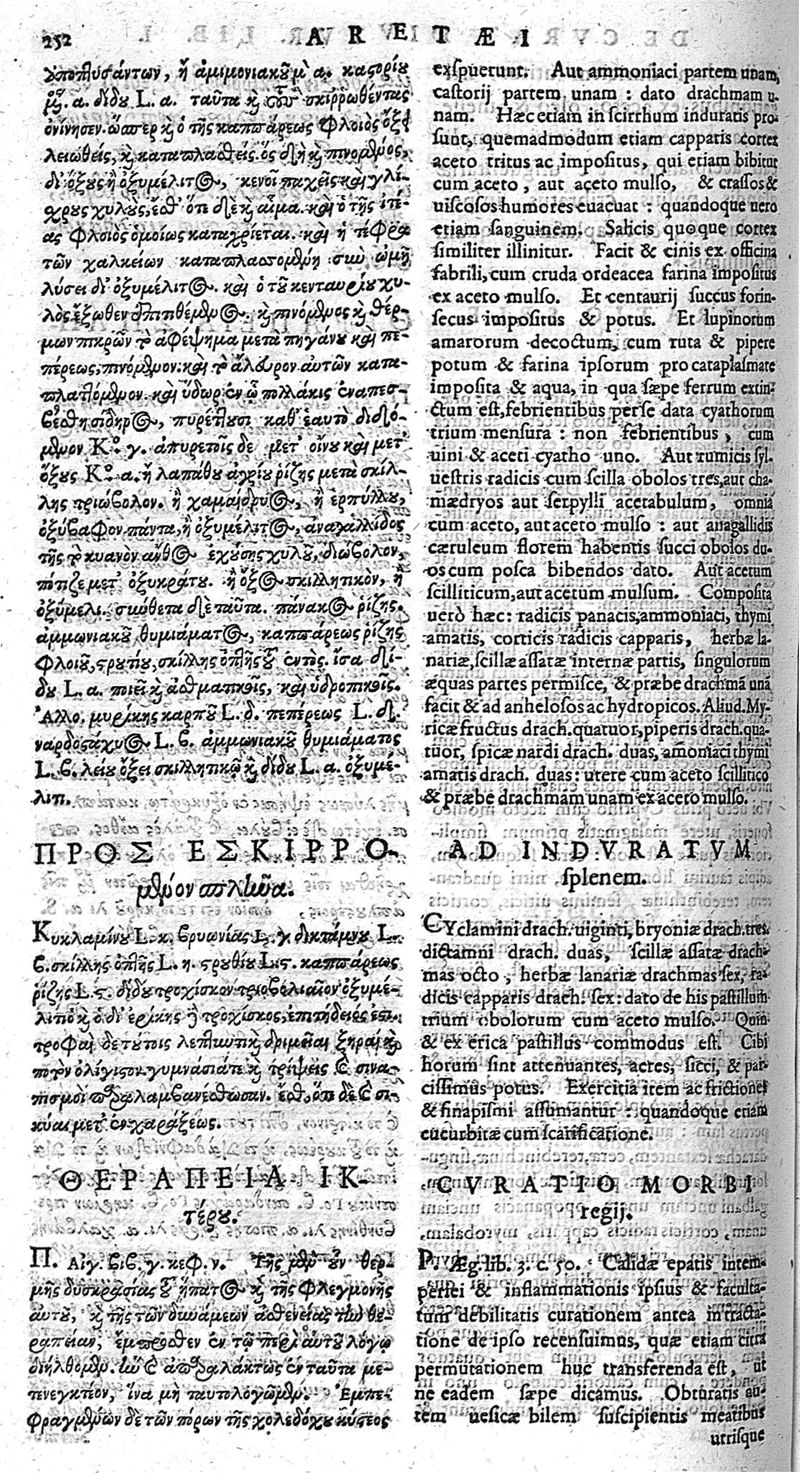 252
ARETÆI
ὑποπλυσάντων, ἢ ἀμμωνιακοῦ μ. α. καστορίου
α. δίδου L. α. ταῦτα καὶ τοὺς σκιῤῥωθέντας
ὀνίνησιν. ὥσπερ καὶ ὁ τῆς καππάρεως φλοιὸς ὄξει
λειωθεὶς, καὶ καταπλασθείς. ὃς δὴ καὶ πινόμενος,
δι' ὄξους ἢ ὀξυμέλιτος, κενοῖ παχεῖς καὶ γλί-
χρους χυλοὺς, ἔσθ' ὅτι δὲ καὶ αἷμα. καὶ ὁ τῆς ἰτέ-
ας φλοιὸς ὁμοίως καταχρίεται. καὶ ἡ τέφρα
τῶν χαλκείων καταπλασσομένη σὺν ὠμῇ
λύσει δι' ὀξυμέλιτος. καὶ ὁ τοῦ κενταυρίου χυ-
λὸς ἔξωθεν ἐπιτιθέμενος. καὶ πινόμενος καὶ θέρ-
μων πικρῶν τὸ ἀφέψημα μετὰ πηγάνου καὶ πε-
πέρεως, πινόμενον. καὶ τὸ ἄλευρον αὐτῶν κατα-
πλαττόμενον. καὶ ὕδωρ ἐν ᾧ πολλάκις ἐναπεσ-
βέσθη σίδηρος, πυρέττουσι καθ' ἑαυτὸ διδό-
μενον Κο. γ. ἀπυρετοῖς δὲ μετ' οἴνου καὶ μετ'
ὄξους Κο. α. ἢ λαπάθου ἀγρίου ῥίζης μετὰ σκίλ-
λης τριώβολον. ἢ χαμαίδρυος, ἢ ἑρπύλλου,
ὀξύβαφον πάντα, ἢ ὀξυμέλιτος, ἀναγαλλίδος
τῆς τὸ κυανὸν ἄνθος ἐχούσης χυλοῦ, διώβολον,
πότιζε μετ' ὀξυκράτου. ἢ ὄξος σκιλλητικὸν, ἢ
ὀξύμελι. σύνθετα δὲ ταῦτα. πάνακος ῥίζης.
ἀμμωνιακοῦ θυμιάματος, καππάρεως ῥίζης
φλοιοῦ, στρυθίου, σκίλλης ὀπτῆς τοῦ ἐντὸς. ἴσα δί-
δου L. α. ποιεῖ καὶ ἀσθματικοῖς, καὶ ὑδροπικοῖς.
Ἄλλο. μυρίκης καρποῦ L. δ. πεπέρεως L. δ.
ναρδοστάχυος L. β. ἀμμωνιακοῦ θυμιάματος
L. β. λείου ὄξει σκιλλητικῷ καὶ δίδου L. α. ὀξυμέ-
λιτι.
ΠΡΟΣ ΕΣΚΙΡΡΟ-
μένον σπλῆνα.
Κυκλαμίνου L. κ. βρυωνίας L. γ. δικτάμνου L.
β. σκίλλης ὀπτῆς L. η. στρυθίου L. ϛ. καππάρεως
ῥίζης L. ϛ. δίδου τροχίσκον τριοβολιαῖον ὀξυμέ-
λιτι καὶ ὁ δι' ἐρίκης τροχίσκος, ἐπιτήδειός ἐστι
τροφαὶ δὲ τούτοις λεπτυντικαὶ δριμεῖαι ξηραὶ καὶ
ποτὸν ὀλίγιστον. γυμνάσιά τε καὶ τρίψεις καὶ σινα-
πισμοὶ παραλαμβανέσθωσαν. ἔσθ' ὅτι δὲ καὶ σι-
κύαι μετ' ἐγχαράξεως.
ΘΕΡΑΠΕΙΑ ΙΚ-
τέρου.
Π. Αἰγ. βιβ. γ. κεφ. ν. Τῆς μὲν οὖν θερ-
μῆς δυσκρασίας τοῦ ἥπατος καὶ τῆς φλεγμονῆς
αὐτοῦ, καὶ τῆς τῶν δυνάμεων ἀσθενείας τὴν θε-
ραπείαν, ἔμπροσθεν ἐν τῷ περὶ αὐτοῦ λόγῳ
διήλθομεν. ἣν καὶ ἀπαραλάκτως ἐνταῦτα με-
τενεγκτέον, ἵνα μὴ ταυτολογῶμεν. Ἐμπε-
φραγμένων δὲ τῶν πόρων τῆς χοληδόχου κύστεος
exspuerunt. Aut ammoniaci partem unam,
castorij partem unam: dato drachmam u-
nam. Hæc etiam in scirrhum induratis pro-
sunt, quemadmodum etiam capparis cortex
aceto tritus ac impositus, qui etiam bibitur
cum aceto, aut aceto mulso, & crassos &
uiscosos humores euacuat: quandoque uero
etiam sanguinem. Salicis quoque cortex
similiter illinitur. Facit & cinis ex officina
fabrili, cum cruda ordeacea farina impositus
ex aceto mulso. Et centaurij succus forin-
secus impositus & potus. Et lupinorum
amarorum decoctum, cum ruta & pipere
potum & farina ipsorum pro cataplasmate
imposita & aqua, in qua sæpe ferrum extin-
ctum est, febrientibus per se data cyathorum
trium mensura: non febrientibus, cum
uini & aceti cyatho uno. Aut rumicis syl-
uestris radicis cum scilla obolos tres, aut cha-
mædryos aut serpylli acetabulum, omnia
cum aceto, aut aceto mulso: aut anagallidis
cæruleum florem habentis succi obolos du-
os cum posca bibendos dato. Aut acetum
scilliticum, aut acetum mulsum. Composita
uero hæc: radicis panacis, ammoniaci, thymi
amatis, corticis radicis capparis, herbæ la-
nariæ, scillæ assatæ internæ partis, singulorum
æquas partes permisce, & præbe drachmā unā,
facit & ad anhelosos ac hydropicos. Aliud. My-
ricæ fructus drach. quatuor, piperis drach. qua-
tuor, spicæ nardi drach. duas, amoniaci thymi
amatis drach. duas: utere cum aceto scillitico
& præbe drachmam unam ex acero mulso.
AD INDVRATVM
splenem.
Cyclamini drach. uiginti, bryoniæ drach. tres.
dictamni drach. duas, scillæ assatæ drach-
mas octo, herbæ lanariæ drachmas sex, ra-
dicis capparis drach. sex: dato de his pastillum
trium obolorum cum aceto mulso. Quin
& ex erica pastillus commodus est. Cibi
horum sint attenuantes, acres, sicci, & par-
cissimus potus. Exercitia item ac frictiones
& sinapismi assumantur: quandoque etiam
cucurbitæ cum scarificatione.
CVRATIO MORBI
regij.
P. Æg. lib. 3. c. 50. Calidæ epatis intem-
periei & inflammationis ipsius & faculta-
tum debilitatis curationem antea in tracta-
tione de ipso recensuimus, quæ etiam citra
permutationem huc transferenda est, ut
ne eadem sæpe dicamus. Obturatis au-
tem uesicæ bilem suscipientis meatibus
utrisque